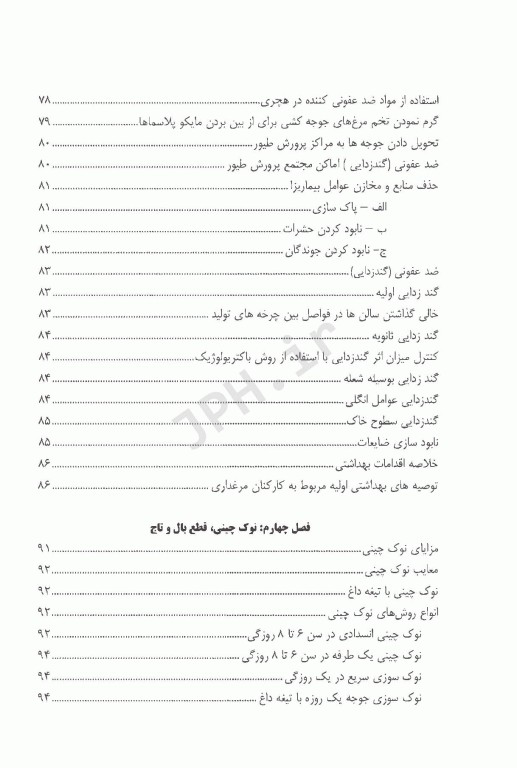 استفاده از مواد ضد عفونی کننده در هچری ........ ۷۸
گرم نمودن تخم مرغ‌های جوجه کشی برای از بین بردن مایکو پلاسماها ........ ۷۹
تحویل دادن جوجه ها به مراکز پرورش طیور ........ ۸۰
ضد عفونی (گندزدایی ) اماکن مجتمع پرورش طیور ........ ۸۰
حذف منابع و مخازن عوامل بیماریزا ........ ۸۱
الف – پاک سازی ........ ۸۱
ب – نابود کردن حشرات ........ ۸۱
ج- نابود کردن جوندگان ........ ۸۲
ضد عفونی (گندزدایی) ........ ۸۳
گند زدایی اولیه ........ ۸۳
خالی گذاشتن سالن ها در فواصل بین چرخه های تولید ........ ۸۳
گند زدایی ثانویه ........ ۸۴
کنترل میزان اثر گندزدایی با استفاده از روش باکتریولوژیک ........ ۸۴
گند زدایی بوسیله شعله ........ ۸۴
گندزدایی عوامل انگلی ........ ۸۴
گندزدایی سطوح خاک ........ ۸۵
نابود سازی ضایعات ........ ۸۵
خلاصه اقدامات بهداشتی ........ ۸۶
توصیه های بهداشتی اولیه مربوط به کارکنان مرغداری ........ ۸۶
فصل چهارم: نوک چینی، قطع بال و تاج
مزایای نوک چینی ........ ۹۱
معایب نوک چینی ........ ۹۲
نوک چینی با تیغه داغ ........ ۹۲
انواع روش‌های نوک چینی ........ ۹۲
نوک چینی انسدادی در سن ۶ تا ۸ روزگی ........ ۹۲
نوک چینی یک طرفه در سن ۶ تا ۸ روزگی ........ ۹۴
نوک سوزی سریع در یک روزگی ........ ۹۴
نوک سوزی جوجه یک روزه با تیغه داغ ........ ۹۴
JPH.ir